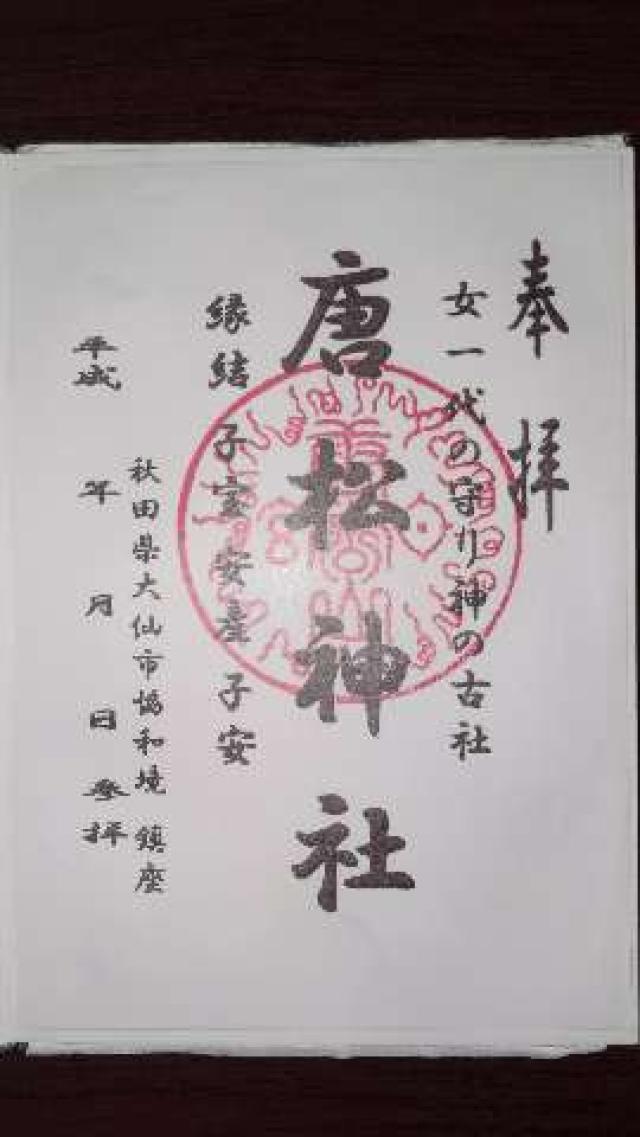 奉拝
女一代の守り神の古社
唐松神社
縁結 子宝 安産 子安
秋田県大仙市協和境 鎮座
平成 年 月 日参拝